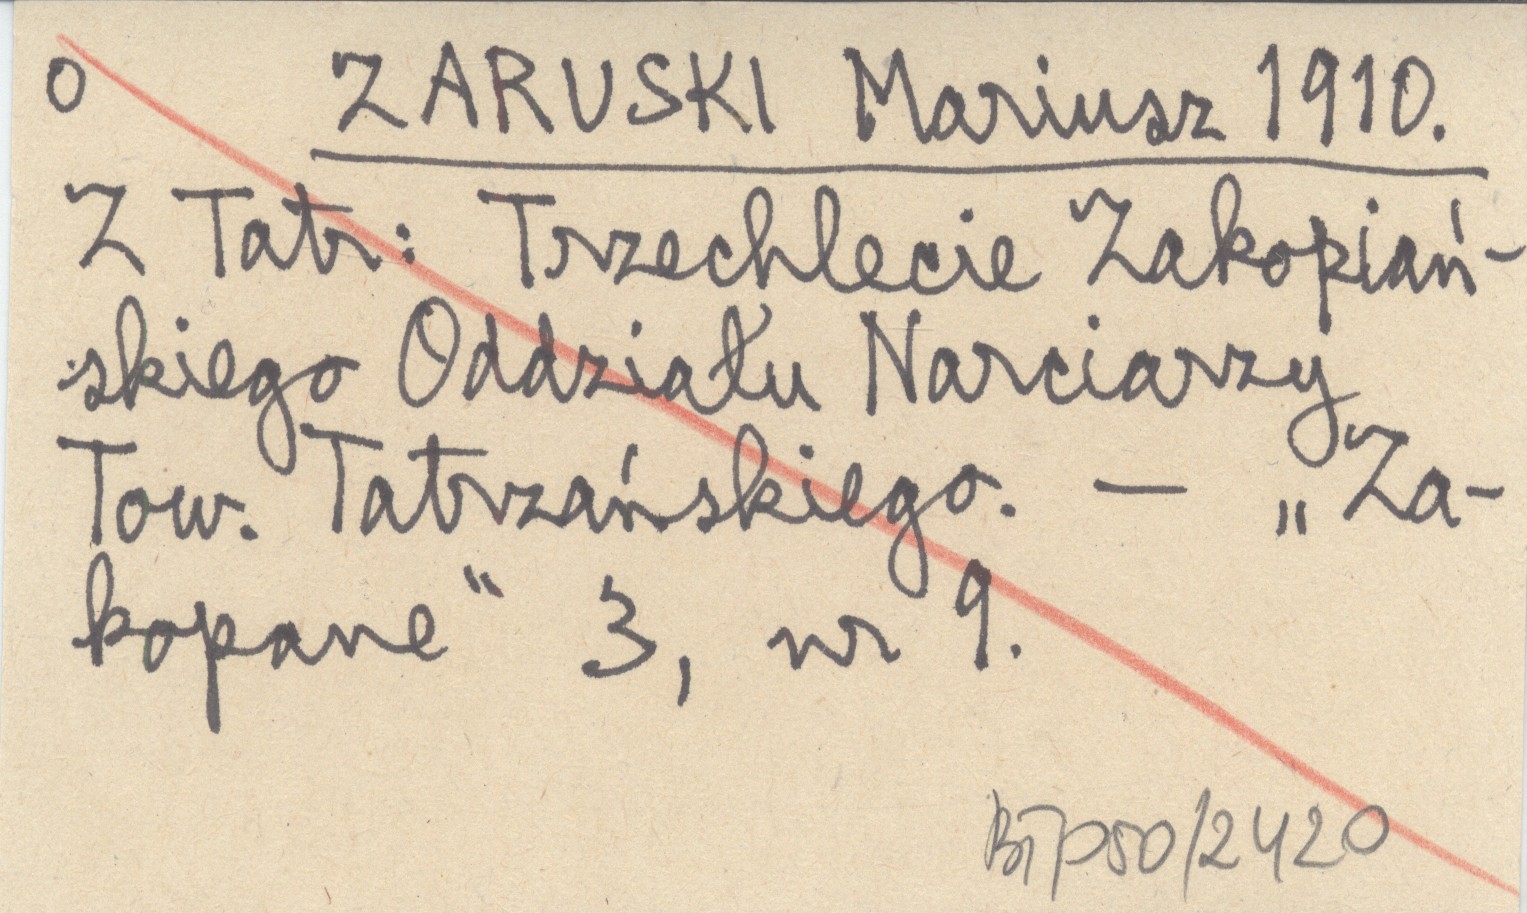 O ZARUSKI Mariusz 1910.
Z Tatr: Trzechlecie Zakopiań-
skiego Oddziału Narciarzy
Tow. Tatrzańskiego. — „Za-
kopane" 3, nr 9.
BTP50/2420